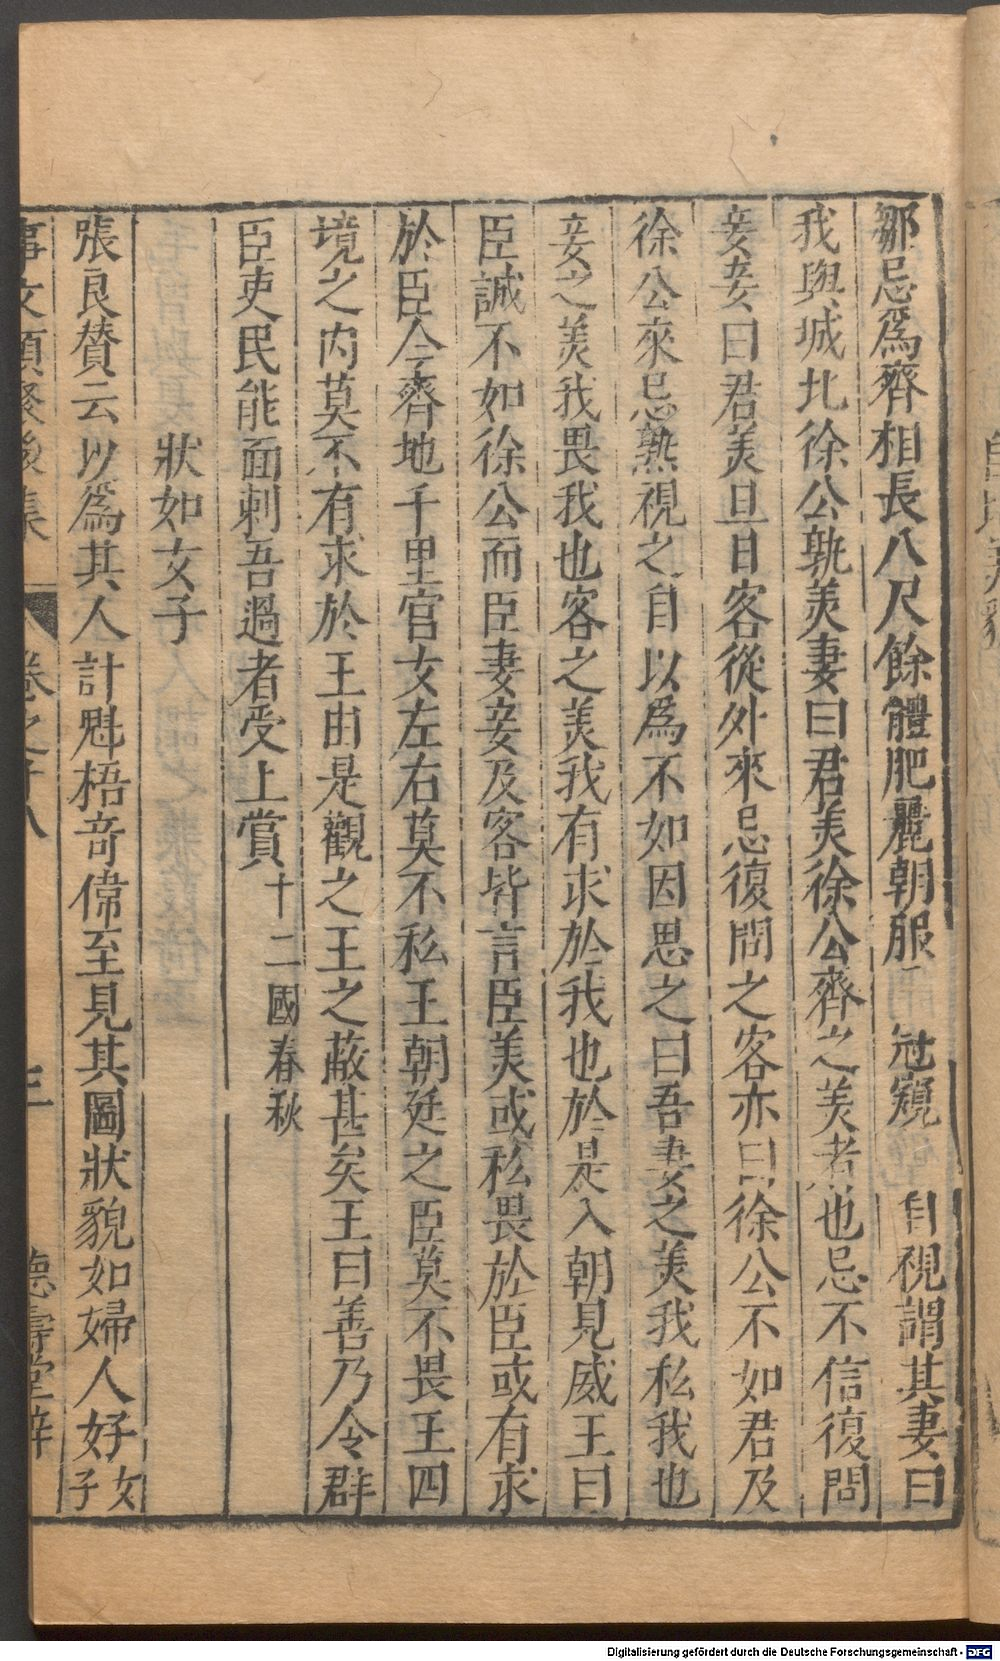 鄒忌爲齊相長八尺餘體肥麗朝服冠窺自視謂其妻曰
我與城北徐公孰羙妻曰君羙徐公齊之羙者也忌不信復問
妾妾曰君羙旦日客從外來忌復問之客亦曰徐公不如君及
徐公來忌熟視之自以爲不如因思之曰吾妻之羙我私我也
妾之羙我畏我也客之羙我有求於我也於是入朝見威王曰
臣誠不如徐公而臣妻妾及客皆言臣美或私畏於臣或有求
於臣今齊地千里宫女左右莫不私王朝廷之臣莫不畏王四
境之内莫不有求於王由是觀之王之蔽甚矣王曰善乃令群
臣吏民能面刺吾過者受上賞十二國春秋
狀如女子
張良賛云以爲其人計魁梧竒偉至見其圖狀貌如婦人好女子
事文類聚後集 卷之十八 三 德壽堂梓
Digitalisierung gefördert durch die Deutsche Forschungsgemeinschaft - DFG